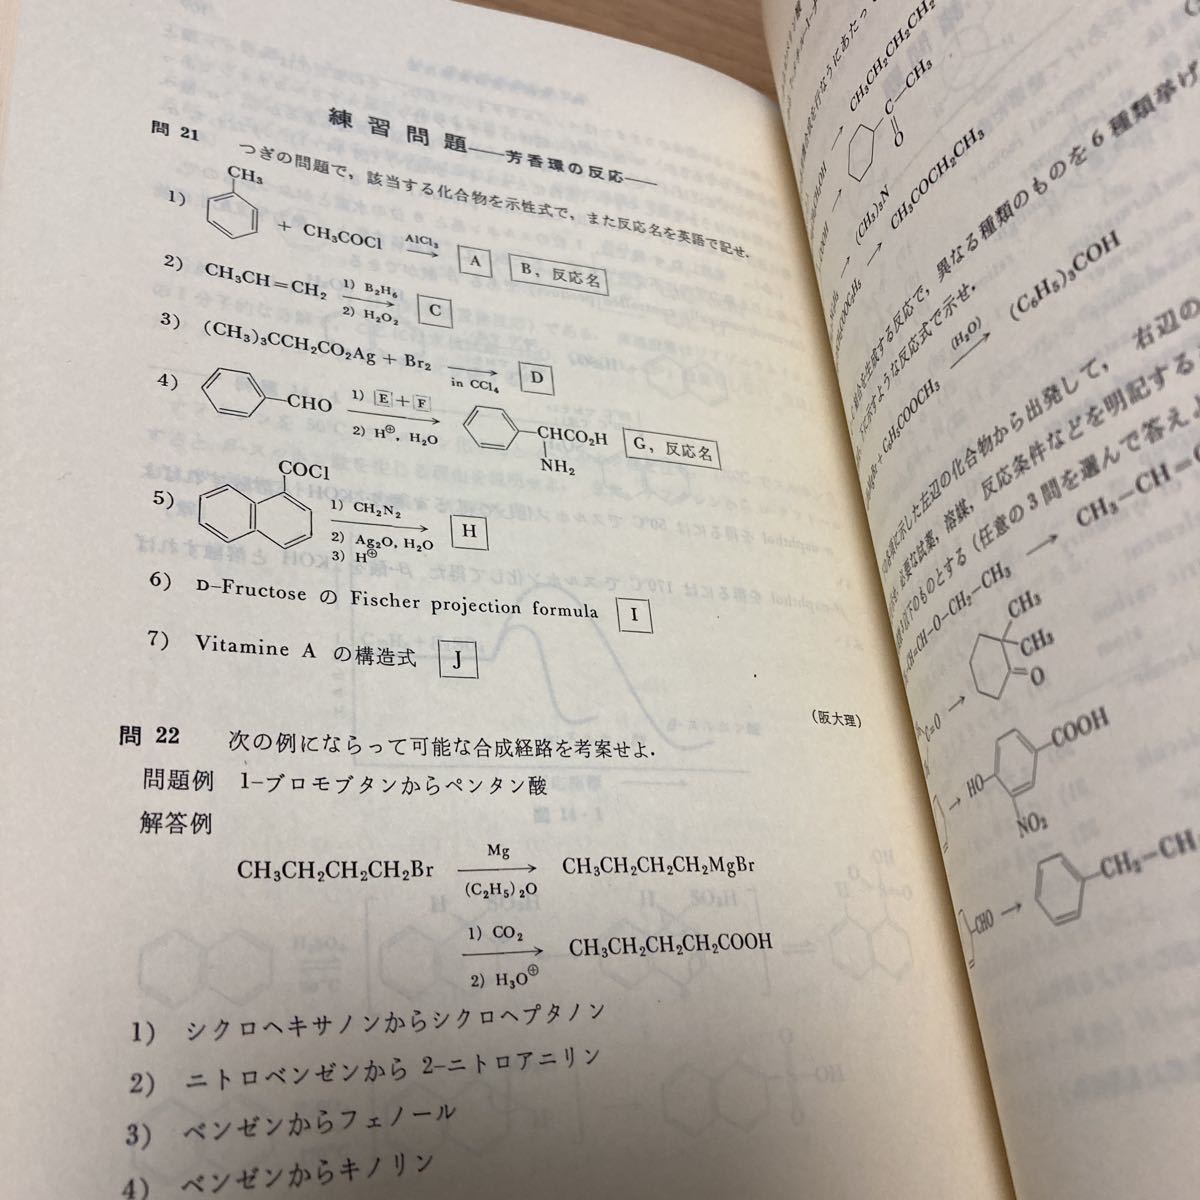 練習問題——芳香環の反応——
問 21 つぎの問題で，該当する化合物を示性式で，また反応名を英語で記せ．
1) CH₃ + CH₃COCl AlCl₃ → A B，反応名
2) CH₃CH=CH₂ 1) B₂H₆ 2) H₂O₂ → C
3) (CH₃)₃CCH₂CO₂Ag + Br₂ → in CCl₄ D
4) —CHO 1) E+F 2) H⊕, H₂O → —CHCO₂H NH₂ G，反応名
5) COCl 1) CH₂N₂ 2) Ag₂O, H₂O 3) H⊕ → H
6) D–Fructose の Fischer projection formula I
7) Vitamine A の構造式 J
(阪大理)
問 22 次の例にならって可能な合成経路を考案せよ．
問題例 1–ブロモブタンからペンタン酸
解答例
CH₃CH₂CH₂CH₂Br Mg (C₂H₅)₂O → CH₃CH₂CH₂CH₂MgBr
1) CO₂ 2) H₃O⊕ → CH₃CH₂CH₂CH₂COOH
1) シクロヘキサノンからシクロヘプタノン
2) ニトロベンゼンから 2–ニトロアニリン
3) ベンゼンからフェノール
4) ベンゼンからキノリン
CH₃CH₂CH₂CH₂
C—CH₃
O
(CH₃)₃N
CH₃COCH₂CH₃
合を生成する反応で，異なる種類のものを 6 種類挙げ
に示すような反応式で示せ．
+ C₆H₅COOCH₃ (H₂O) → (C₆H₅)₃COH
に示した左辺の化合物から出発して，右辺の
必要な試薬，溶媒，反応条件などを明記する
のものとする（任意の 3 問を選んで答え
CH=CH–O–CH₂–CH₃ → CH₃–CH–
CH₃
CH₃
=O
C=O →
HO– –COOH
NO₂
CHO → –CH₂–CH